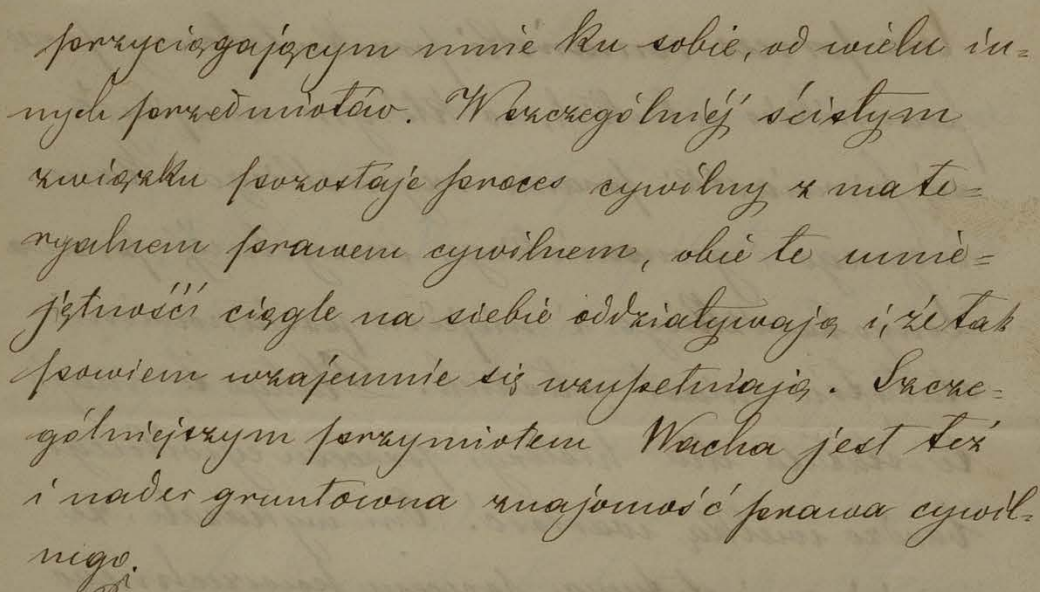 przyciągającym mnie ku sobie, od wielu in=
nych przedmiotów. W szczególniéj ścisłym
związku pozostaje proces cywilny z mate=
ryalnem prawem cywilnem, obie te umie=
jętności ciągle na siebie oddziaływają i, że tak
powiem wzajemnie się wzupełniają. Szcze=
gólniejszym przymiotem Wacha jest też
i nader gruntowna znajomość prawa cywil=
nego.